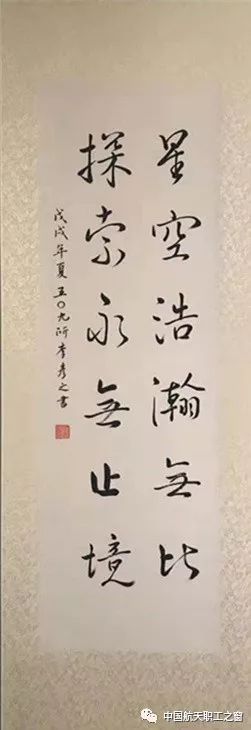 星空浩瀚無比
探索永無止境
戊戌年夏五〇九所李彦之書
中国航天职工之窗